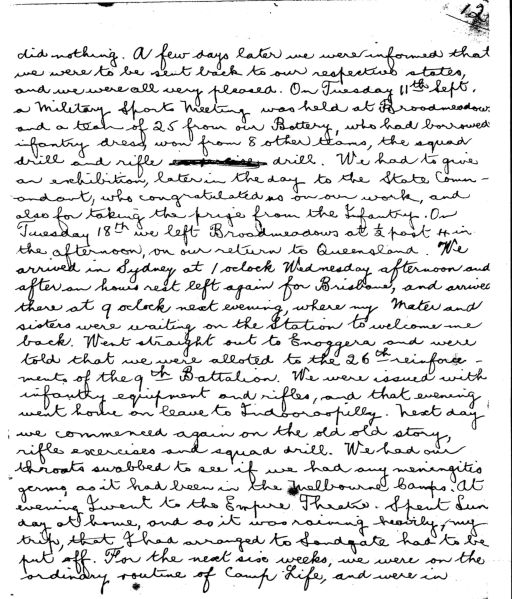 12
did nothing. A few days later we were informed that
we were to be sent back to our respective states,
and we were all very pleased. On Tuesday 11th Sept.
a Military Sports Meeting was held at Broadmeadows
and a team of 25 from our Battery, who had borrowed
infantry dress, won from 8 other teams, the squad
drill and rifle drill. We had to give
an exhibition, later in the day to the State Comm-
andant, who congratulated us on our work, and
also for taking the prize from the Infantry. On
Tuesday 18th we left Broadmeadows at ½ past 4 in
the afternoon, on our return to Queensland. We
arrived in Sydney at 1 oclock Wednesday afternoon and
after an hours rest left again for Brisbane, and arrived
there at 9 oclock next evening, where my Mater and
sisters were waiting on the Station to welcome me
back. Went straight out to Enoggera and were
told that we were alloted to the 26th reinforce-
ments of the 9th Battalion. We were issued with
infantry equipment and rifles, and that evening
went home on leave to Indooroopilly. Next day
we commenced again on the old old story,
rifle exercises and squad drill. We had our
throats swabbed to see if we had any meningitis
germs, as it had been in the Melbourne Camps. At
evening I went to the Empire Theatre. Spent Sun
day at home, and as it was raining heavily, my
trip, that I had arranged to Sandgate had to be
put off. For the next six weeks, we were on the
ordinary routine of Camp Life, and were in